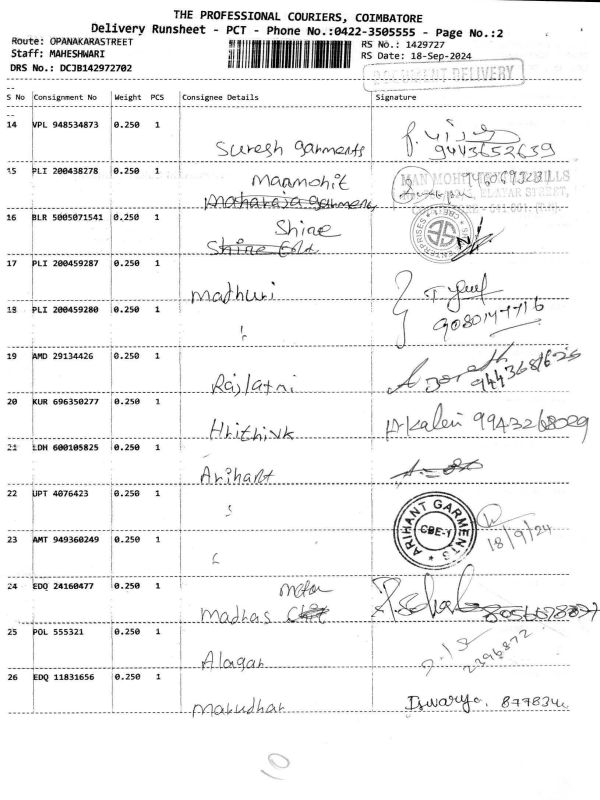 THE PROFESSIONAL COURIERS, COIMBATORE
Delivery Runsheet - PCT - Phone No.:0422-3505555 - Page No.:2
Route: OPANAKARASTREET
RS No.: 1429727
Staff: MAHESHWARI
RS Date: 18-Sep-2024
DRS No.: DCJB142972702
DOCUMENT DELIVERY
S No Consignment No Weight PCS Consignee Details Signature
14 VPL 948534873 0.250 1
Suresh garments
9443652639
15 PLI 200438278 0.250 1
Manmohit
Maharaja garments
16 BLR 5005071541 0.250 1
Shine
Shine Gold
17 PLI 200459287 0.250 1
Madhuri
18 PLI 200459280 0.250 1
9080147716
19 AMD 29134426 0.250 1
Rajlaxmi
20 KUR 696350277 0.250 1
Hrithivk
9943268029
21 LDH 600105825 0.250 1
Arihant
22 UPT 4076423 0.250 1
ARIHANT GARMENTS
CBE-1
18/9/24
23 AMT 949360249 0.250 1
24 EDQ 24160477 0.250 1
Madhas
25 POL 555321 0.250 1
Alagar
2396872
26 EDQ 11831656 0.250 1
Marudhar
Iswarya. 877834
10